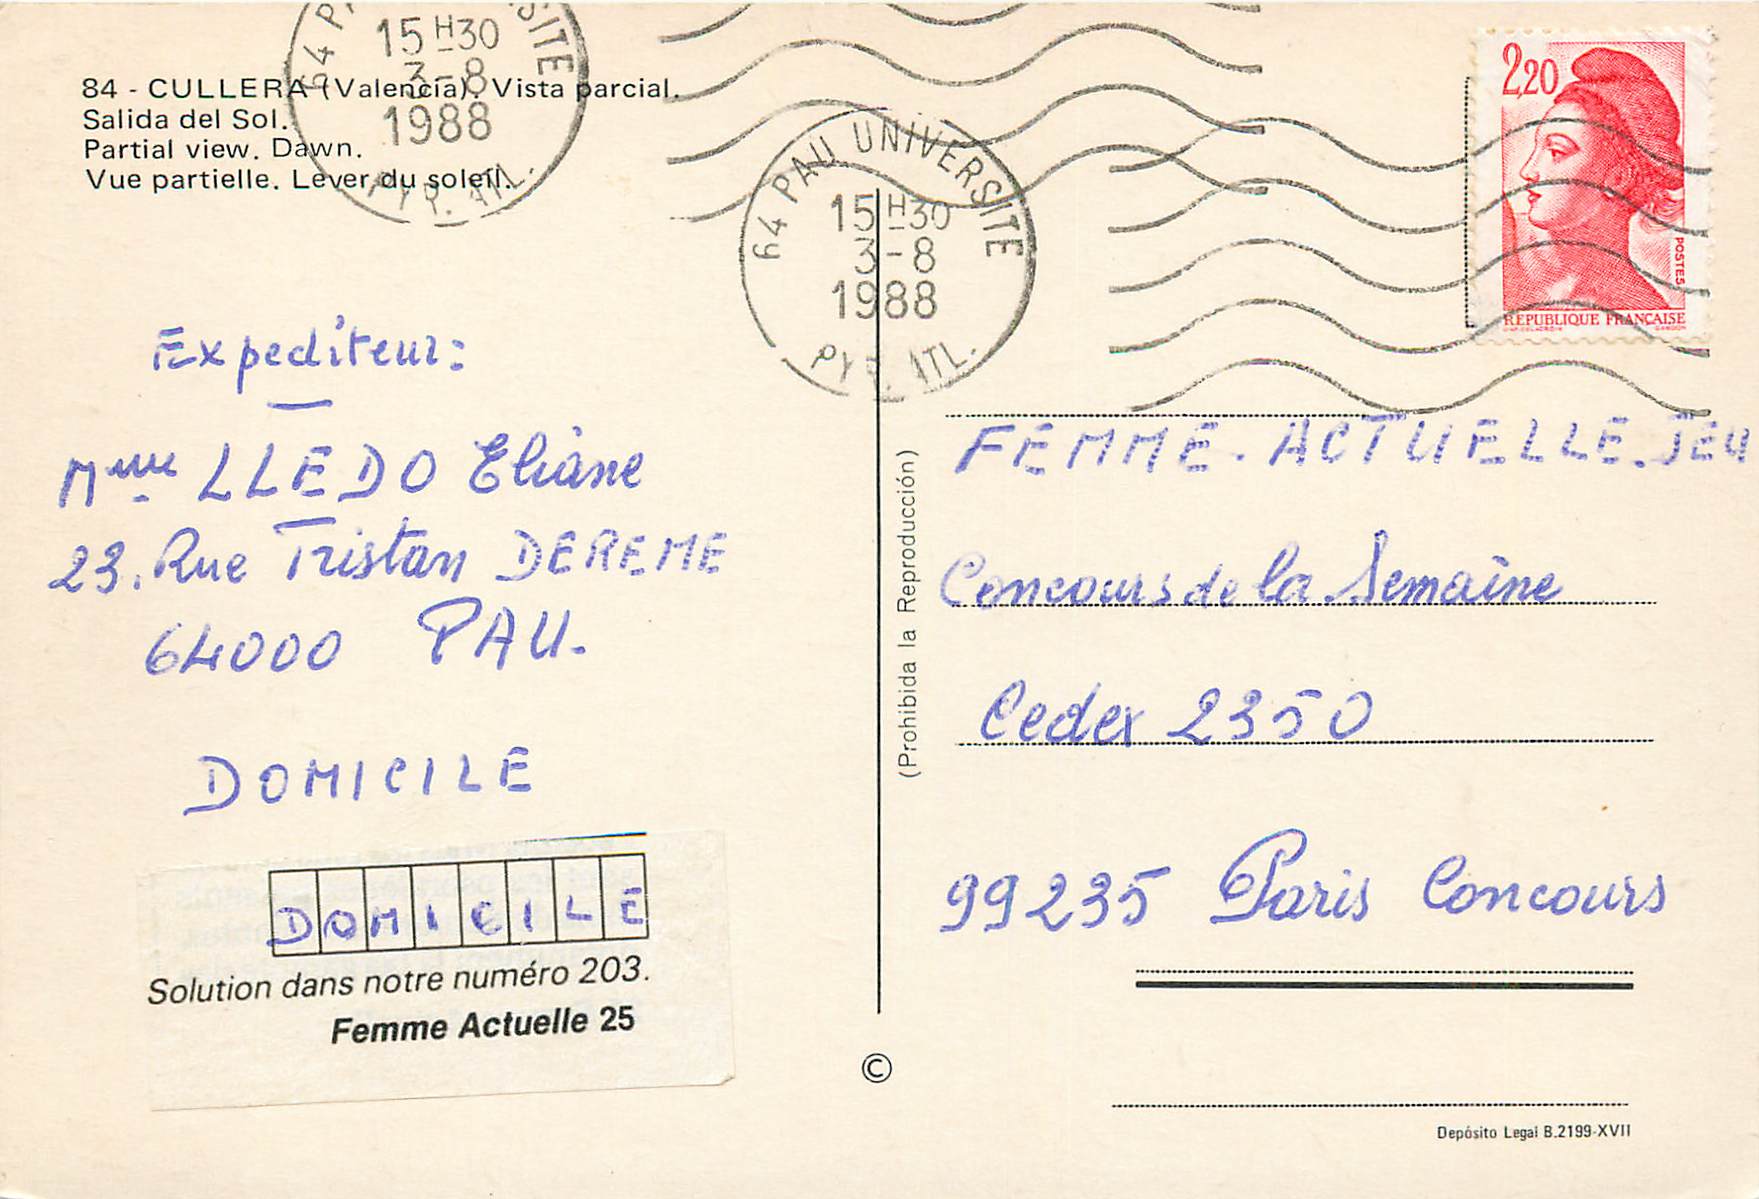 84 - CULLERA (Valencia). Vista parcial.
Salida del Sol.
Partial view. Dawn.
Vue partielle. Lever du soleil.
15H30
3-8
1988
PYR. ATL.
64 PAU UNIVERSITE
15H30
3-8
1988
PYR. ATL.
2,20
POSTES
REPUBLIQUE FRANÇAISE
Expediteur:
Mme LLEDO Eliane
23. Rue Tristan DEREME
64000 PAU.
DOMICILE
DOMICILE
Solution dans notre numéro 203.
Femme Actuelle 25
(Prohibida la Reproducción)
©
FEMME. ACTUELLE. JEU
Concours de la Semaine
Cedex 2350
99235 Paris Concours
Depósito Legal B.2199-XVII